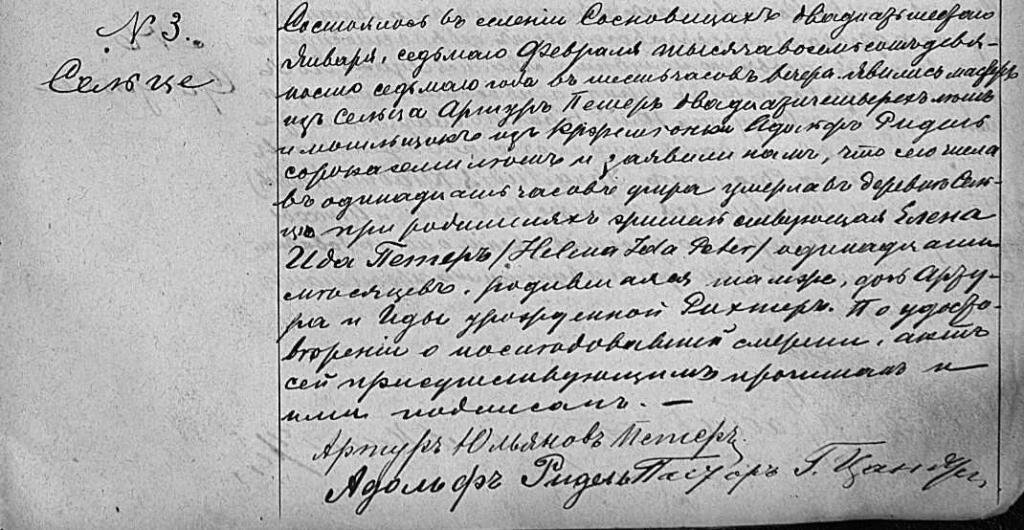 № 3.
Сельце
Состоялось въ селеніи Сосновицахъ двадцать шестаго
Января, седьмаго Февраля тысяча восемьсотъ девя-
носто седьмаго года въ шесть часовъ вечера. Явились мастеръ
изъ Сельца Артуръ Петеръ двадцати четырехъ лѣтъ
и мыльщикъ изъ Адольфъ Ридель
сорока семи лѣтъ и заявили намъ, что сего числа
въ одинадцать часовъ утра умерла въ деревнѣ Сель-
цѣ при родителяхъ Елена
Ида Петеръ /Helena Ida Peter/ одинадцати
мѣсяцевъ, родившаяся тамже, дочь Арту-
ра и Иды урожденной Рихтеръ. По удосто-
вѣреніи о послѣдовавшей смерти, актъ
сей присутствующимъ прочитанъ и
ими подписанъ. —
Артуръ Юльяновъ Петеръ
Адольфъ Ридель Пасторъ Г. Цандеръ